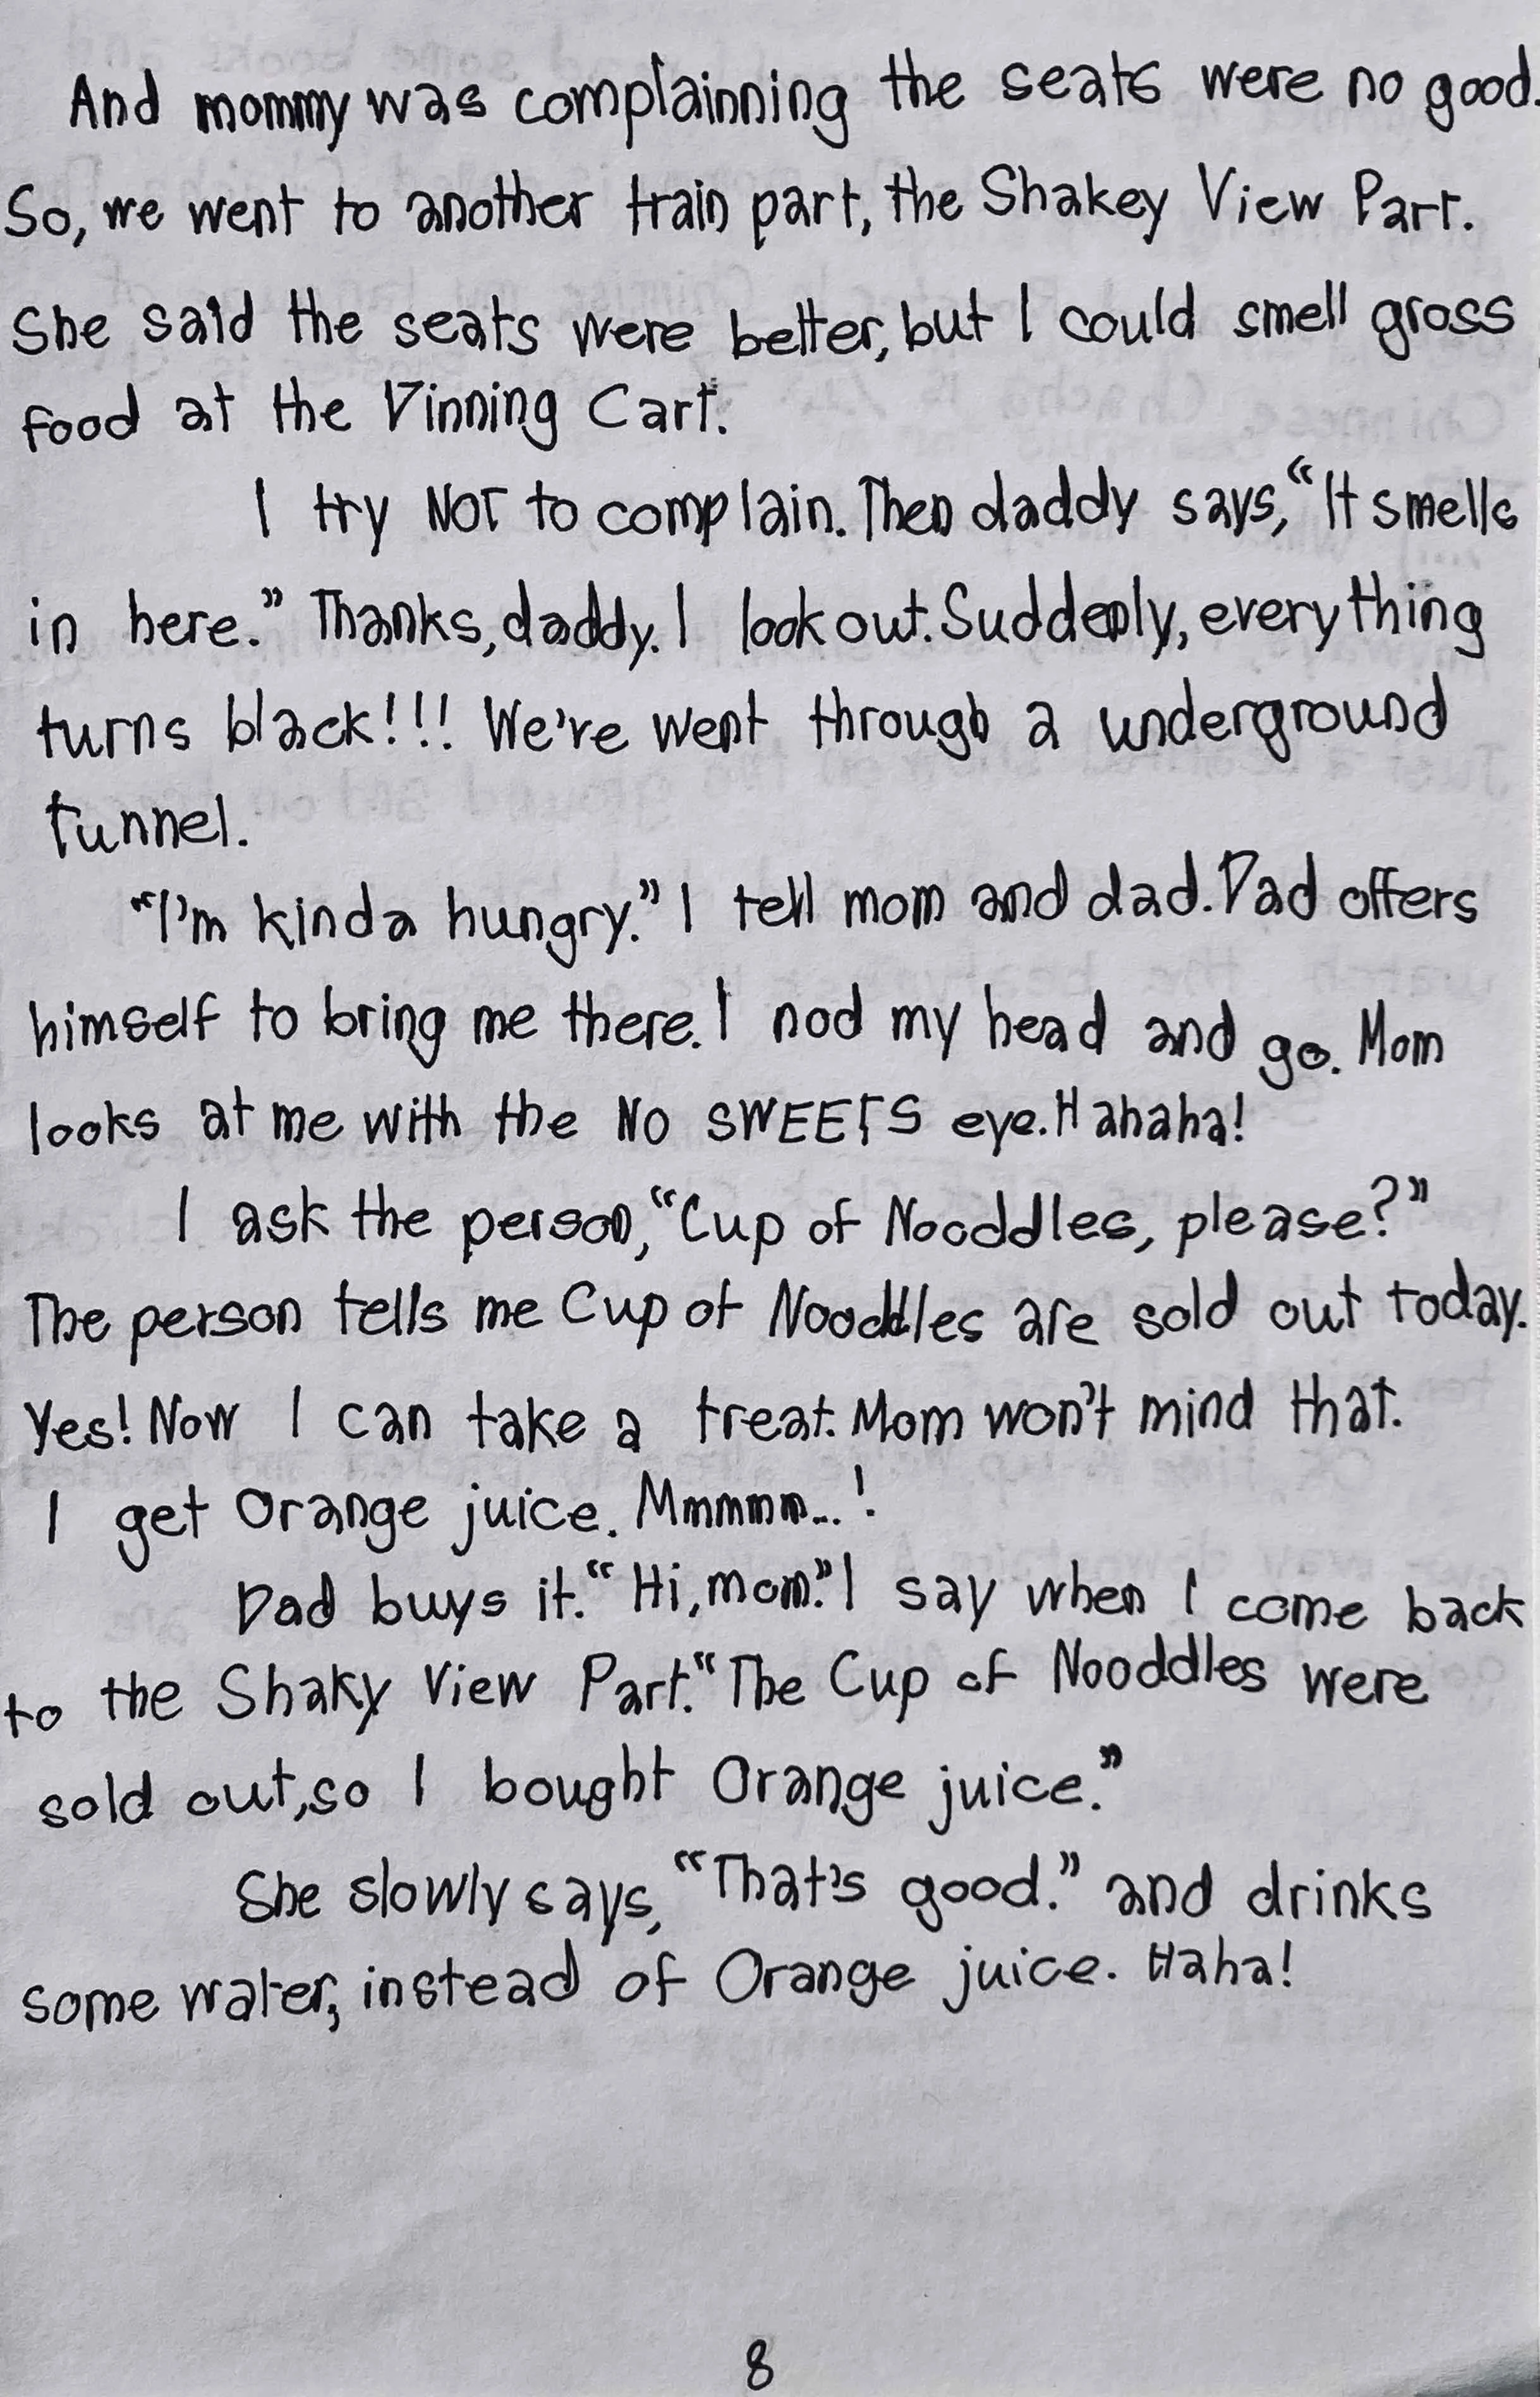 And mommy was complainning the seats were no good.
So, we went to another train part, the Shakey View Part.
She said the seats were better, but I could smell gross
food at the Dinning Cart.
I try NOT to complain. Then daddy says, “It smells
in here.” Thanks, daddy. I look out. Suddenly, everything
turns black!!! We're went through a underground
tunnel.
“I'm kinda hungry.” I tell mom and dad. Dad offers
himself to bring me there. I nod my head and go. Mom
looks at me with the NO SWEETS eye. Hahaha!
I ask the person, “Cup of Nooddles, please?”
The person tells me Cup of Nooddles are sold out today.
Yes! Now I can take a treat. Mom won't mind that.
I get Orange juice. Mmmmm...!
Dad buys it. “Hi, mom.” I say when I come back
to the Shaky View Part. “The Cup of Nooddles were
sold out, so I bought Orange juice.”
She slowly says, “That's good.” and drinks
some water, instead of Orange juice. Haha!
8